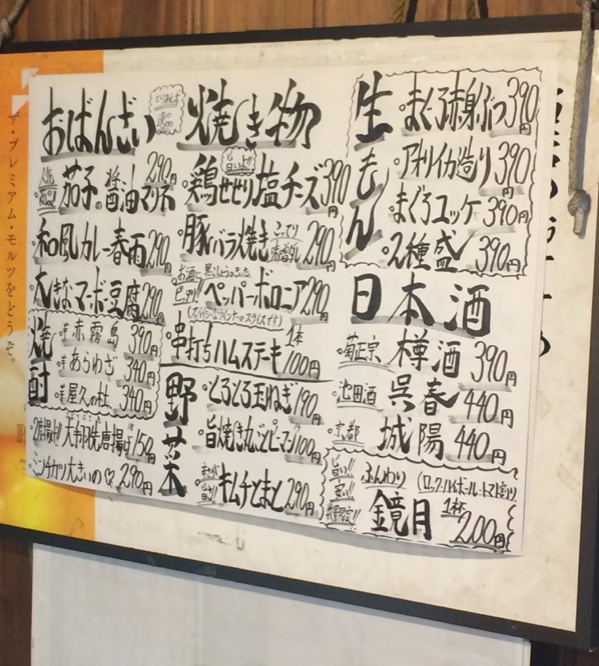 おばんざい
茄子の醤油マリネ 290円
和風カレー春雨 290円
大きなマーボ豆腐 290円
焼酎
芋 赤霧島 390円
あらわざ 340円
芋 屋久の杜 340円
大判焼唐揚げ 150円
ミンチカツ大きいの♡ 290円
焼き物
鶏せせり塩チーズ 390円
豚バラ焼き 290円
ペッパーボロニア 290円
(スパイシーなウインナーのスライスです)
串打ちハムステーキ 1本100円
野菜
とろとろ玉ねぎ 190円
旨焼き丸ごとピーマン 100円
キムチとまと 290円
生もん
まぐろ赤身ぶつ 390円
アオリイカ造り 390円
まぐろユッケ 390円
2種盛 390円
日本酒
菊正宗 樽酒 390円
池田酒 呉春 440円
京都 城陽 440円
旨い!! 安い!!
ふんわり
鏡月 1杯200円
ザ・プレミアム・モルツをどうぞ。